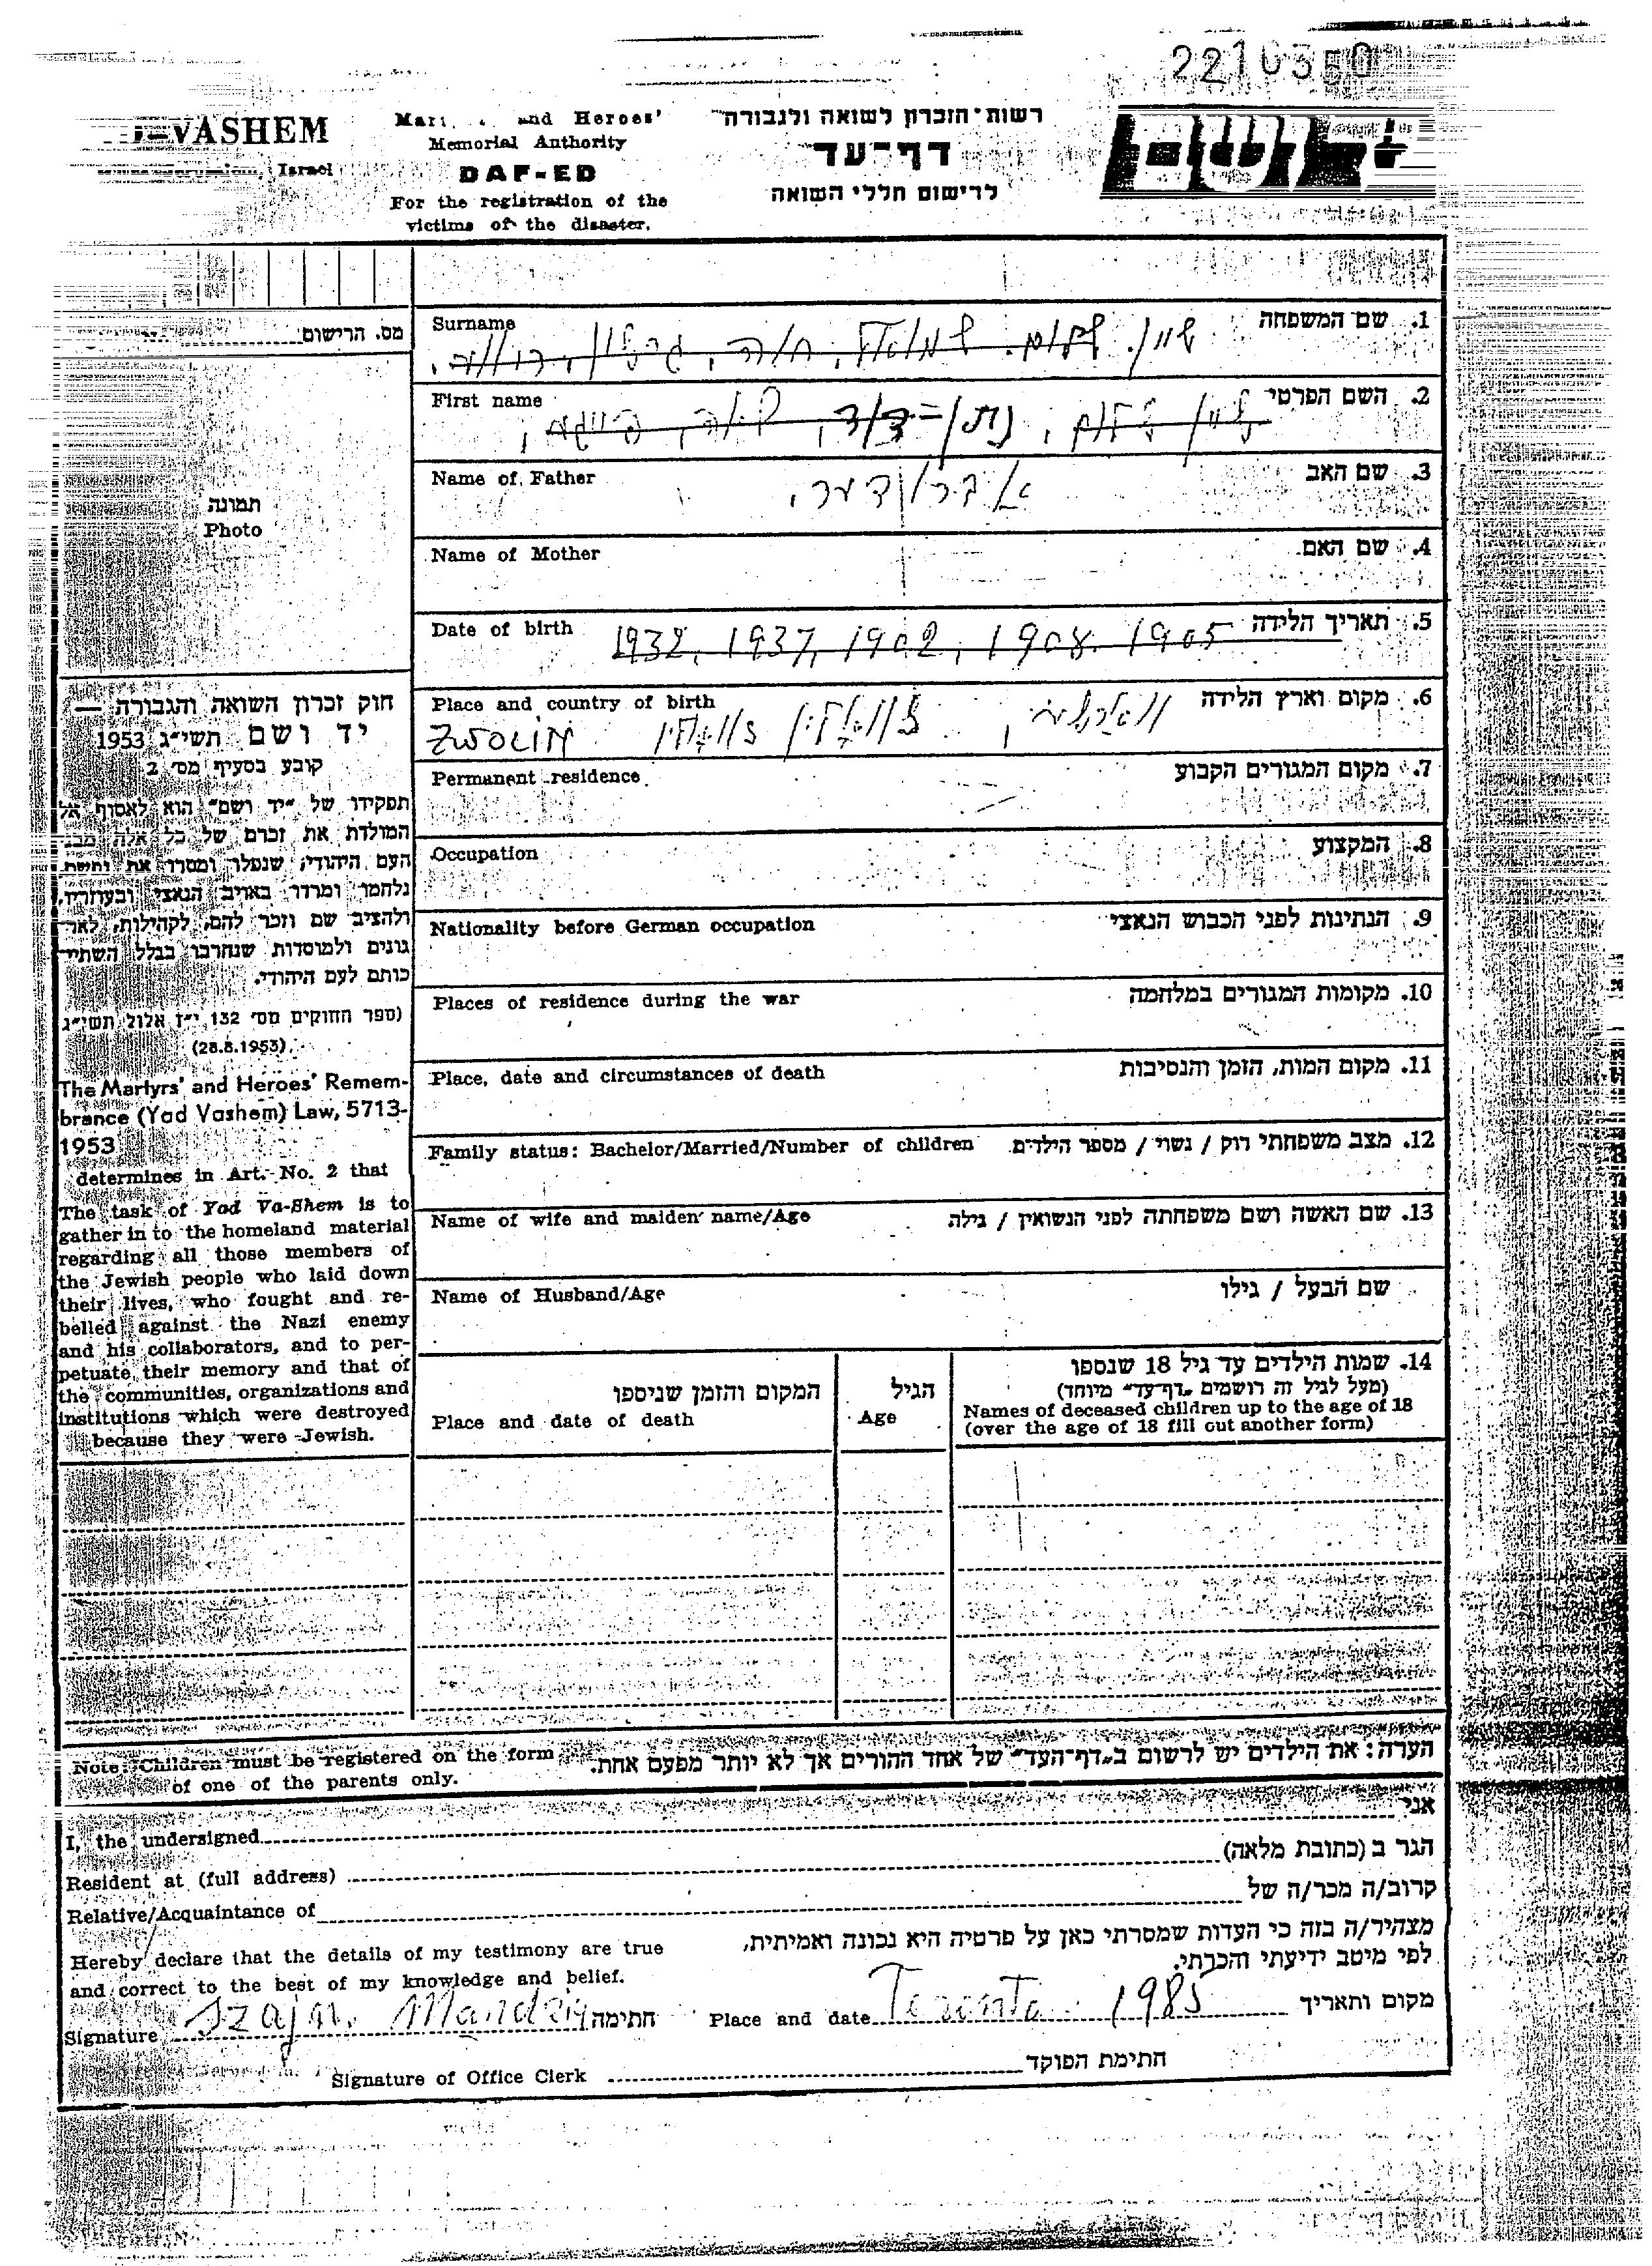 2210350
VASHEM
Israel
and Heroes'
Memorial Authority
DAF-ED
For the registration of the
victims of the disaster.
רשות־הזכרון לשואה ולגבורה
דף־עד
לרישום חללי השואה
מס. הרישום
תמונה
Photo
חוק זכרון השואה והגבורה —
יד ושם תשי״ג 1953
קובע בסעיף מס׳ 2
תפקידו של ״יד ושם״ הוא לאסוף אל
המולדת את זכרם של כל אלה מבני
העם היהודי, שנפלו ומסרו את נפשם
נלחמו ומרדו באויב הנאצי ובעוזריו,
ולהציב שם וזכר להם, לקהילות, לאר־
גונים ולמוסדות שנחרבו בגלל השתיי־
כותם לעם היהודי.
(ספר החוקים מס׳ 132 י״ז אלול תשי״ג
(28.8.1953)
The Martyrs' and Heroes' Remem-
brance (Yad Vashem) Law, 5713-
1953
determines in Art. No. 2 that
The task of Yad Va-Shem is to
gather in to the homeland material
regarding all those members of
the Jewish people who laid down
their lives, who fought and re-
belled against the Nazi enemy
and his collaborators, and to per-
petuate their memory and that of
the communities, organizations and
institutions which were destroyed
because they were Jewish.
Surname
1. שם המשפחה
שיין. שלום. שמואל,
First name
2. השם הפרטי
נתן=דוד,
Name of Father
3. שם האב
Name of Mother
4. שם האם
Date of birth 1932, 1937, 1902, 1908. 1905 5. תאריך הלידה
Place and country of birth
6. מקום וארץ הלידה
ZWOLIN
Permanent residence
7. מקום המגורים הקבוע
Occupation
8. המקצוע
Nationality before German occupation
9. הנתינות לפני הכבוש הנאצי
Places of residence during the war
10. מקומות המגורים במלחמה
Place, date and circumstances of death
11. מקום המות, הזמן והנסיבות
Family status: Bachelor/Married/Number of children
12. מצב משפחתי רוק / נשוי / מספר הילדים
Name of wife and maiden name/Age
13. שם האשה ושם משפחתה לפני הנשואין / גילה
Name of Husband/Age
שם הבעל / גילו
14. שמות הילדים עד גיל 18 שנספו
(מעל לגיל זה רושמים „דף־עד״ מיוחד)
Names of deceased children up to the age of 18
(over the age of 18 fill out another form)
הגיל
Age
המקום והזמן שניספו
Place and date of death
Note: Children must be registered on the form
of one of the parents only.
הערה: את הילדים יש לרשום ב„דף־העד״ של אחד ההורים אך לא יותר מפעם אחת.
I, the undersigned
אני
Resident at (full address)
הגר ב (כתובת מלאה)
Relative/Acquaintance of
קרוב/ה מכר/ה של
Hereby declare that the details of my testimony are true
and correct to the best of my knowledge and belief.
מצהיר/ה בזה כי העדות שמסרתי כאן על פרטיה היא נכונה ואמיתית,
לפי מיטב ידיעתי והכרתי.
Signature Szajn. חתימה
Place and date Toronto. 1985 מקום ותאריך
Signature of Office Clerk חתימת הפוקד